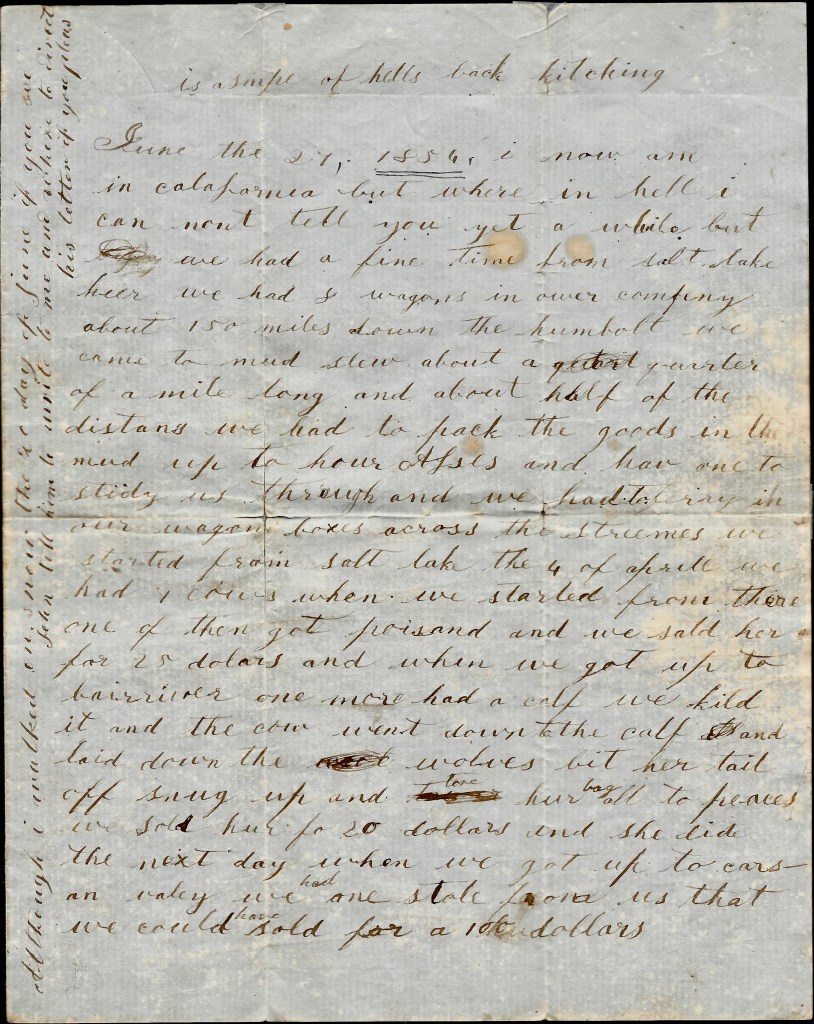 is a smple of hells back kitching
June the 27, 1854, i now am
in calafornia but where in hell i
can nont tell you yet a while but
we had a fine time from salt lake
heer we had 8 wagons in ower compeny
about 150 miles down the humbolt we
came to mud slew about a quarter
of a mile long and about half of the
distans we had to pack the goods in the
mud up to hour Asses and hav one to
stidy us through and we had to ferry in
our wagon boxes across the streemes we
started from salt lake the 4 of aprill we
had 7 cows when we started from there
one of then got poisand and we sald her
for 25 dolars and when we got up to
bairriver one more had a calf we kild
it and the cow went down to the calf and
laid down the wolves bit her tail
off snug up and tore hur bag all to peaces
we sold hur fo 20 dollars and she dide
the next day when we got up to cars-
an valey we had one stole from us that
we could have sold for a 100 dollars
Although i walked on snow the 20 day of June if you see
John tell him to write to me and where to direct
his letter if you pleas